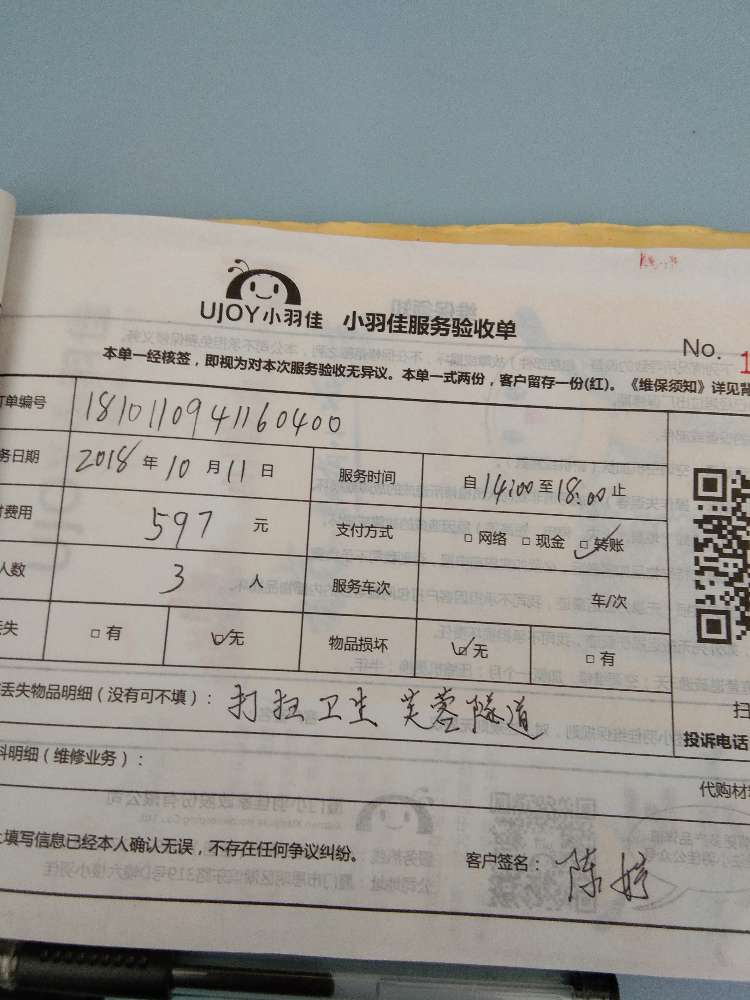 UJOY小羽佳 小羽佳服务验收单
No. 1
本单一经核签，即视为对本次服务验收无异议。本单一式两份，客户留存一份(红)。《维保须知》详见背
订单编号 1810110941160400
务日期 2018 年 10 月 11 日 服务时间 自 14:00 至 18:00 止
付费用 597 元 支付方式 □ 网络 □ 现金 ☑ 转账
人数 3 人 服务车次 车/次
丢失 □ 有 ☑ 无 物品损坏 ☑ 无 □ 有
丢失物品明细（没有可不填）： 打扫卫生 芙蓉隧道
扫
投诉电话
料明细（维修业务）：
代购材
上填写信息已经本人确认无误，不存在任何争议纠纷。 客户签名： 陈婷